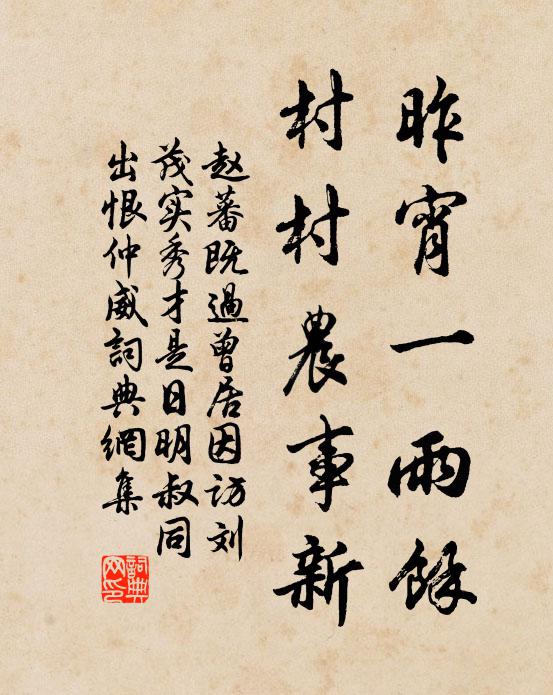 昨宵一雨餘
村村農事新
赵蕃既過曾居因访刘
茂实秀才是日明叔同
出恨仲威詞典網集
詞典网印